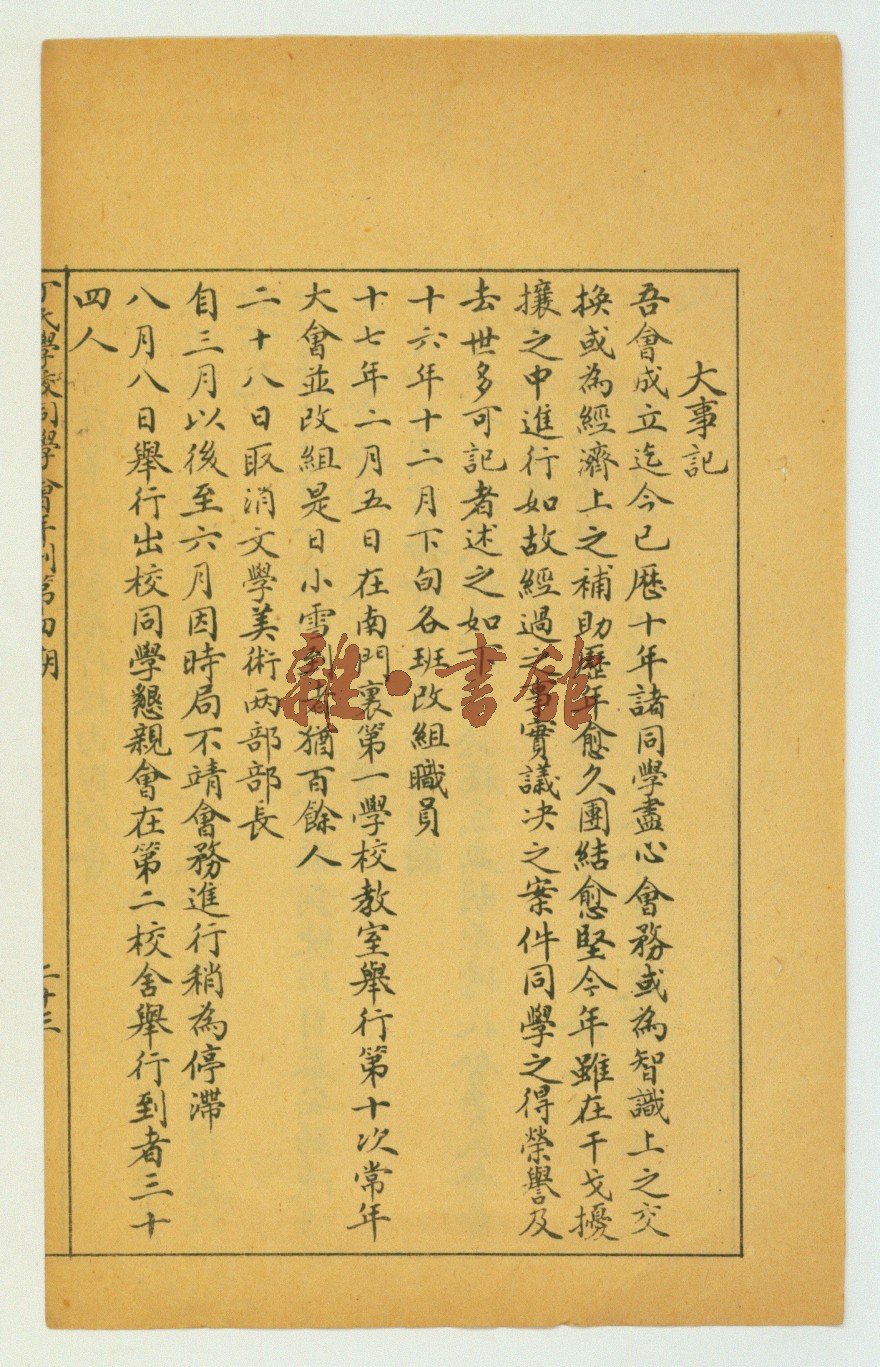 大事記
吾會成立迄今已歷十年諸同學盡心會務或為智識上之交
換或為經濟上之補助歷年愈久團結愈堅今年雖在干戈擾
攘之中進行如故經過之事實議決之案件同學之得榮譽及
去世多可記者述之如下
十六年十二月下旬各班改組職員
十七年二月五日在南門裏第一學校教室舉行第十次常年
大會並改組是日小雪到者猶百餘人
二十八日取消文學美術兩部部長
自三月以後至六月因時局不靖會務進行稍為停滯
八月八日舉行出校同學懇親會在第二校舍舉行到者三十
四人
丁氏學校同學會年刊第四期
二十三
雜·書館